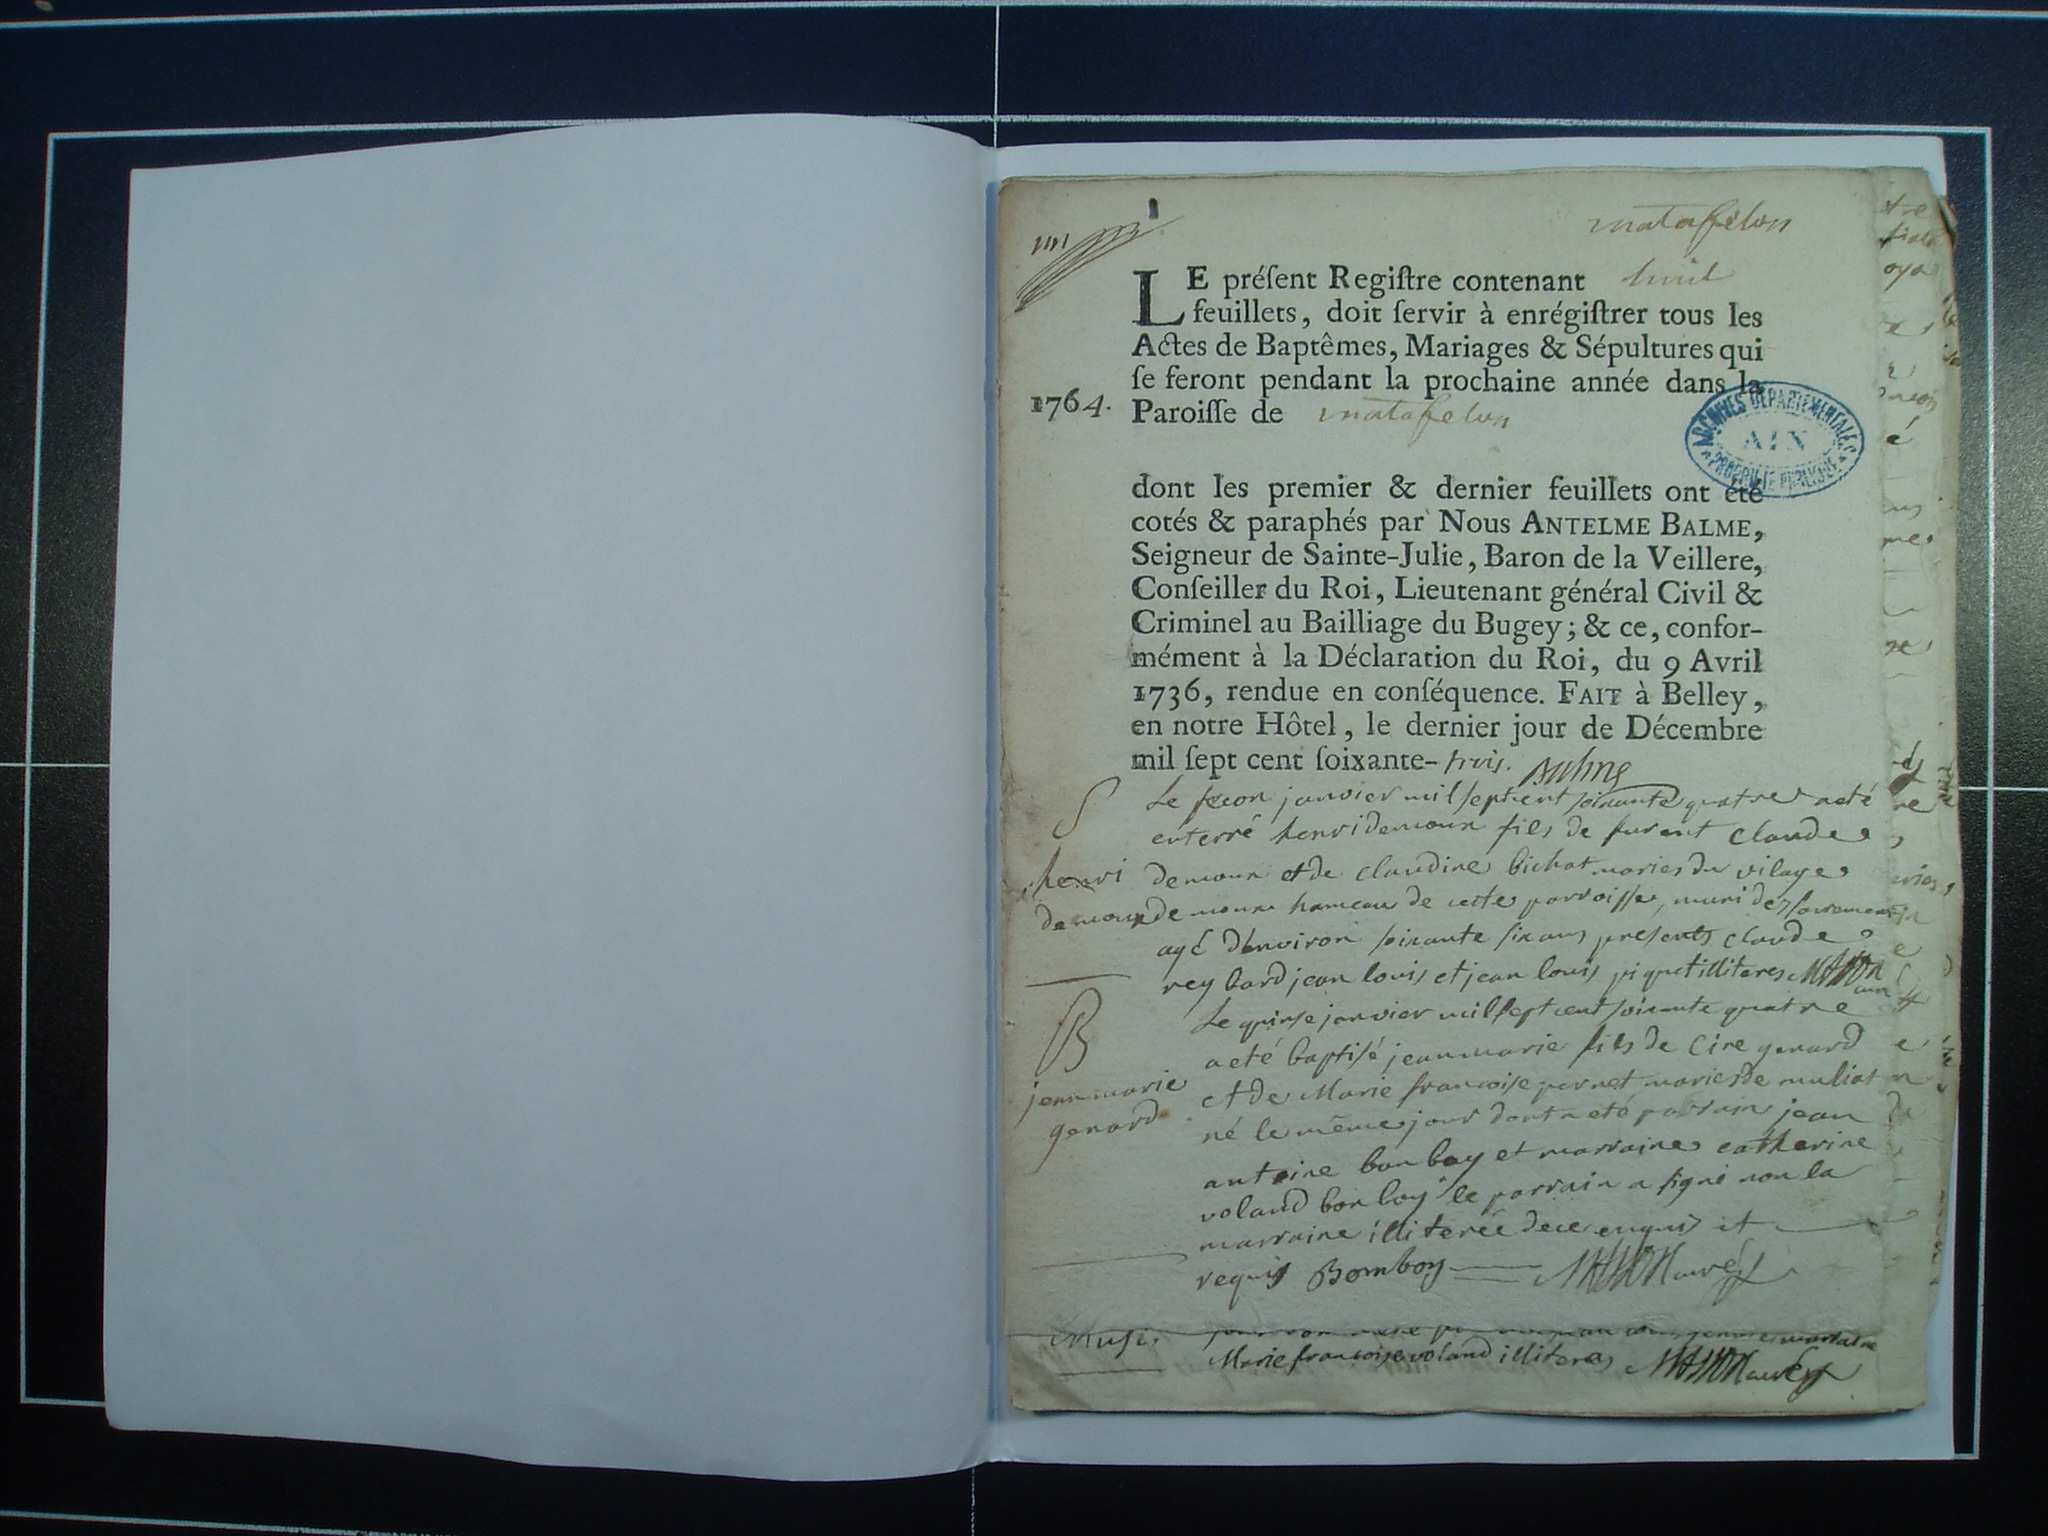 matafelon
un
LE préſent Regiſtre contenant huit
feuillets, doit ſervir à enrégiſtrer tous les
Actes de Baptêmes, Mariages & Sépultures qui
ſe feront pendant la prochaine année dans la
1764. Paroiſſe de matafelon
ARCHIVES DÉPARTEMENTALES
AIN
PROPRIÉTÉ PUBLIQUE
dont les premier & dernier feuillets ont été
cotés & paraphés par Nous ANTELME BALME,
Seigneur de Sainte-Julie, Baron de la Veillere,
Conſeiller du Roi, Lieutenant général Civil &
Criminel au Bailliage du Bugey; & ce, confor-
mément à la Déclaration du Roi, du 9 Avril
1736, rendue en conſéquence. FAIT à Belley,
en notre Hôtel, le dernier jour de Décembre
mil ſept cent ſoixante-trois. Balme
S
Le secon janvier mil sept cent soixante quatre a eté
enterré henri demour fils de furent claude
henri
demour
demour et de claudine bichat maries du vilage
demour hameau de cette parroisse, muni des sacremens
agé d'environ soixante six ans presents claude
reybard jean louis et jean louis piquet illiteres MASSON curé
B
jean marie
genard
Le quinse janvier mil sept cent soixante quatre
a eté baptisé jean marie fils de Cire genard
et de Marie francoise pernet maries de muliat
né le même jour dont a eté parrain jean
antoine bonboy et marraine catherine
voland bonboy le parrain a signé non la
marraine illiterée de ce enquis et
requis Bomboy MASSON curé
Marie francoise voland illiteres MASSON curé